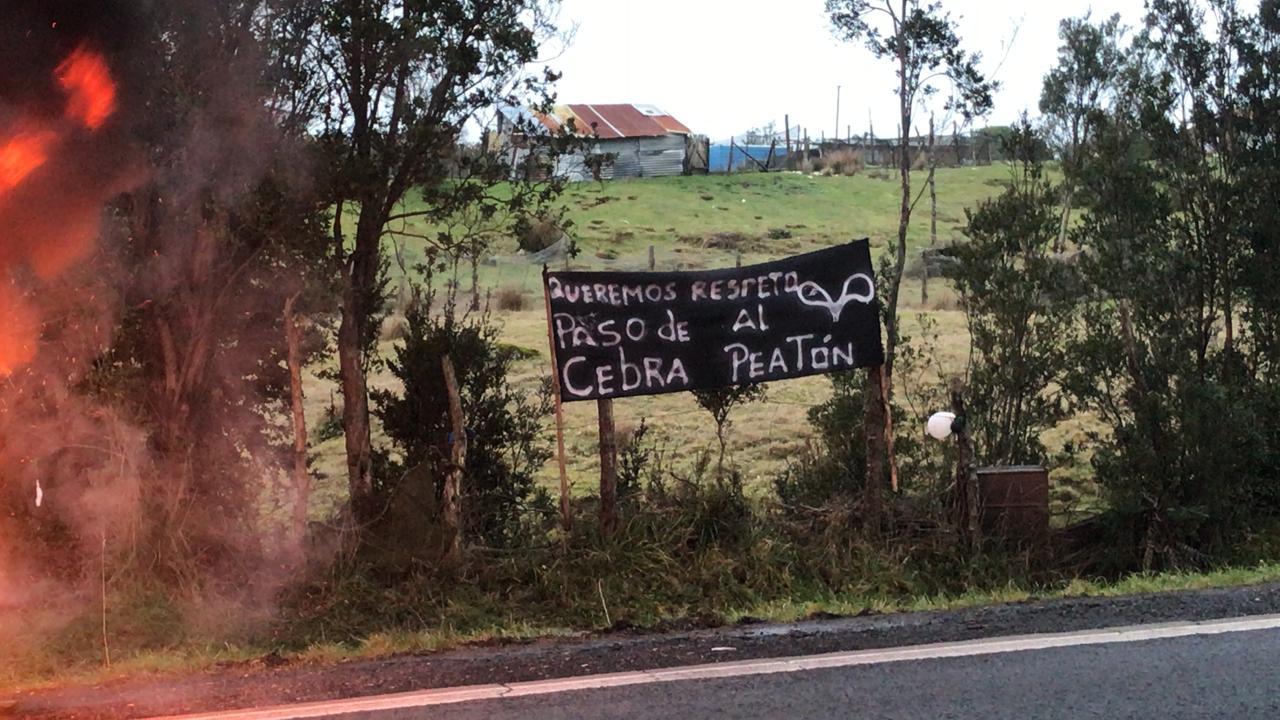 QUEREMOS RESPETO
PASO de Al
CebRA PeATóN